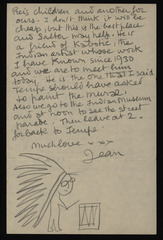 Rei's children and another for
ours. I don't think it will be
cheap, but this is the best place
and Shelter may help. He is
a friend of Kabotie, the
Indian artist whose work
I have known since 1930
and we are to meet him
today. He is the one that I said
Temple should have asked
to paint the mural.
Also we go to the Indian Museum
and at noon to see the street
parade. Then leave at 2.
for back to Tempe
Much love x x x
Jean